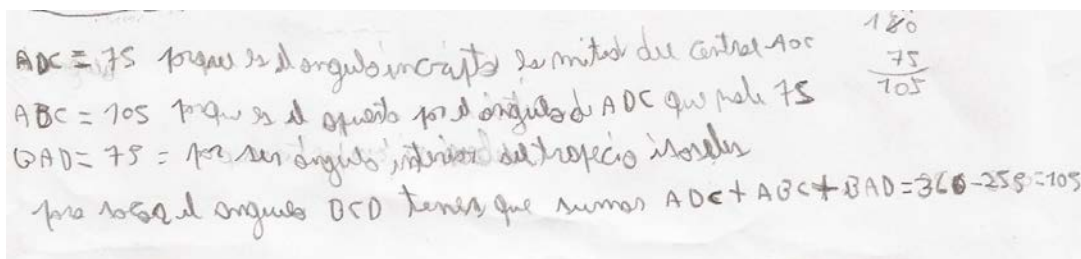 ADC = 75 porque es el angulo incripto la mitad del central AOC
ABC = 105 porque es el opuesto por el ángulo d ADC que mide 75
BAD = 75 = por ser ángulo interior del trapecio isoseles
para sacar el angulo BCD tenes que sumar ADC + ABC + BAD = 360 - 255 = 105
180
75
105